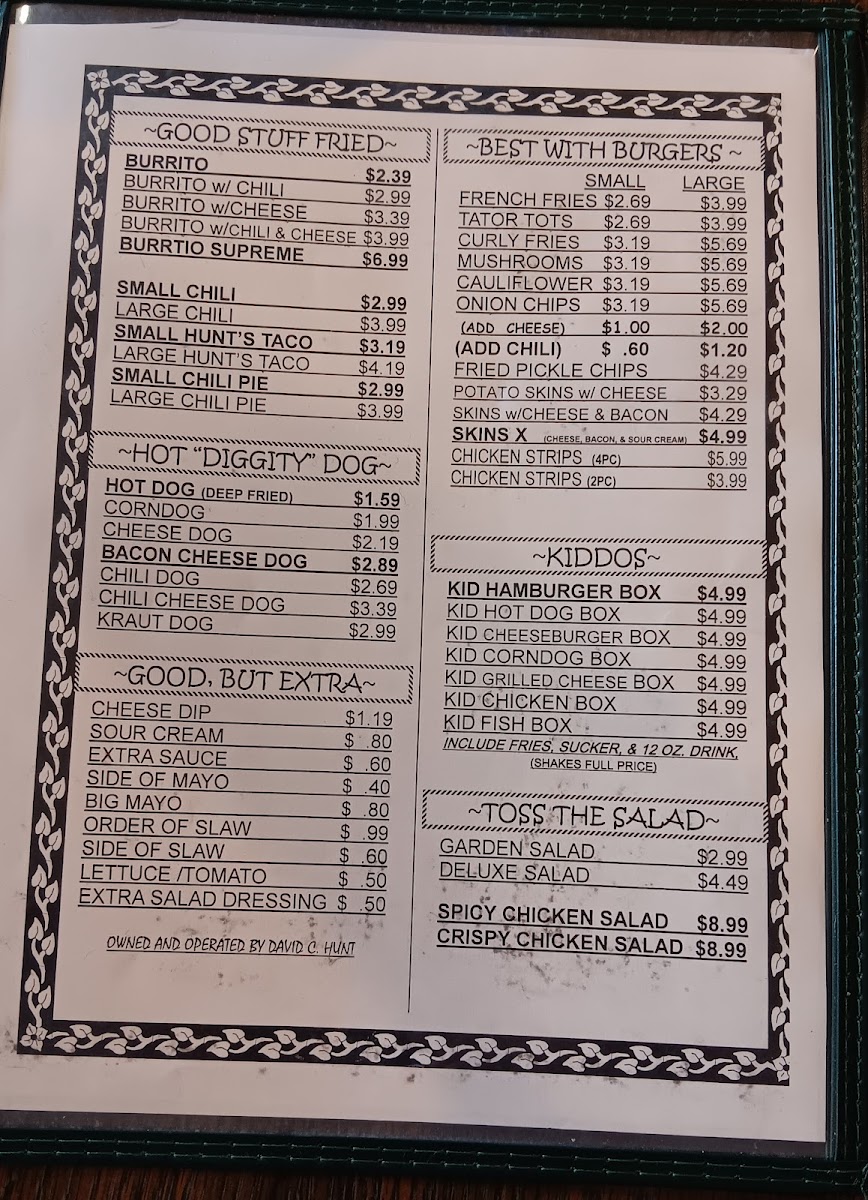 ~GOOD STUFF FRIED~
BURRITO $2.39
BURRITO w/ CHILI $2.99
BURRITO w/CHEESE $3.39
BURRITO w/CHILI & CHEESE $3.99
BURRTIO SUPREME $6.99
SMALL CHILI $2.99
LARGE CHILI $3.99
SMALL HUNT'S TACO $3.19
LARGE HUNT'S TACO $4.19
SMALL CHILI PIE $2.99
LARGE CHILI PIE $3.99
~HOT "DIGGITY" DOG~
HOT DOG (DEEP FRIED) $1.59
CORNDOG $1.99
CHEESE DOG $2.19
BACON CHEESE DOG $2.89
CHILI DOG $2.69
CHILI CHEESE DOG $3.39
KRAUT DOG $2.99
~GOOD, BUT EXTRA~
CHEESE DIP $1.19
SOUR CREAM $ .80
EXTRA SAUCE $ .60
SIDE OF MAYO $ .40
BIG MAYO $ .80
ORDER OF SLAW $ .99
SIDE OF SLAW $ .60
LETTUCE /TOMATO $ .50
EXTRA SALAD DRESSING $ .50
OWNED AND OPERATED BY DAVID C. HUNT
~BEST WITH BURGERS ~
SMALL LARGE
FRENCH FRIES $2.69 $3.99
TATOR TOTS $2.69 $3.99
CURLY FRIES $3.19 $5.69
MUSHROOMS $3.19 $5.69
CAULIFLOWER $3.19 $5.69
ONION CHIPS $3.19 $5.69
(ADD CHEESE) $1.00 $2.00
(ADD CHILI) $ .60 $1.20
FRIED PICKLE CHIPS $4.29
POTATO SKINS w/ CHEESE $3.29
SKINS w/CHEESE & BACON $4.29
SKINS X (CHEESE, BACON, & SOUR CREAM) $4.99
CHICKEN STRIPS (4PC) $5.99
CHICKEN STRIPS (2PC) $3.99
~KIDDOS~
KID HAMBURGER BOX $4.99
KID HOT DOG BOX $4.99
KID CHEESEBURGER BOX $4.99
KID CORNDOG BOX $4.99
KID GRILLED CHEESE BOX $4.99
KID CHICKEN BOX $4.99
KID FISH BOX $4.99
INCLUDE FRIES, SUCKER, & 12 OZ. DRINK,
(SHAKES FULL PRICE)
~TOSS THE SALAD~
GARDEN SALAD $2.99
DELUXE SALAD $4.49
SPICY CHICKEN SALAD $8.99
CRISPY CHICKEN SALAD $8.99